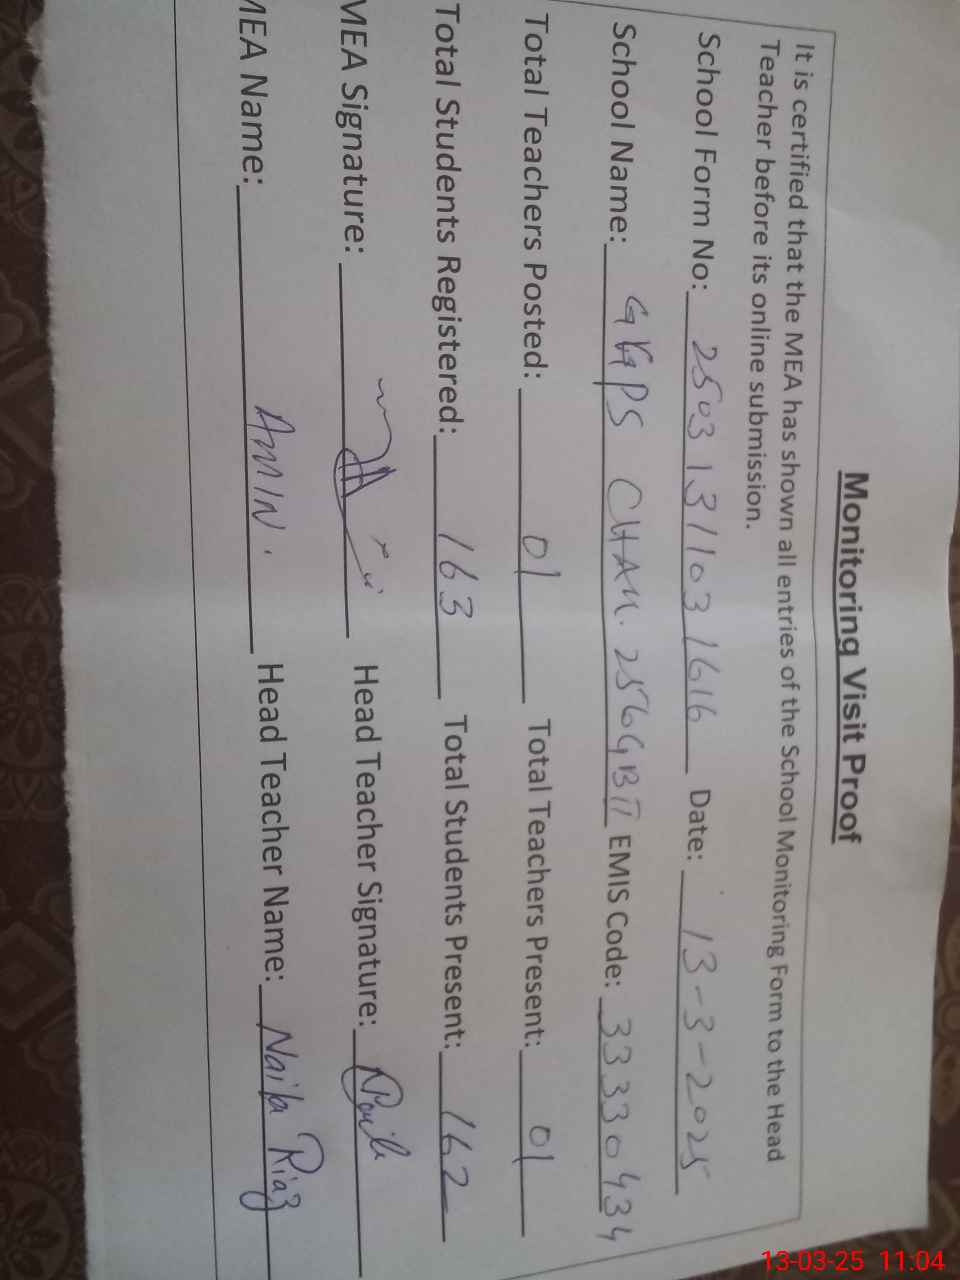 Monitoring Visit Proof
It is certified that the MEA has shown all entries of the School Monitoring Form to the Head
Teacher before its online submission.
School Form No: 25031311031616 Date: 13-3-2025
School Name: GGPS CHAK. 256GB II EMIS Code: 33330434
Total Teachers Posted: 01 Total Teachers Present: 01
Total Students Registered: 163 Total Students Present: 162
MEA Signature: Head Teacher Signature:
MEA Name: AMIN. Head Teacher Name: Naila Riaz
13-03-25 11:04